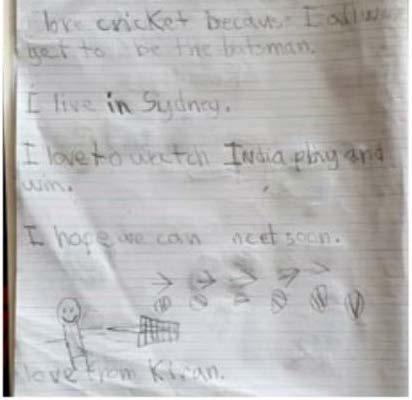 love cricket because I allways
get to be the batsman.
I live in Sydney.
I love to watch India play and
win.
I hope we can meet soon.
love from Kiran.